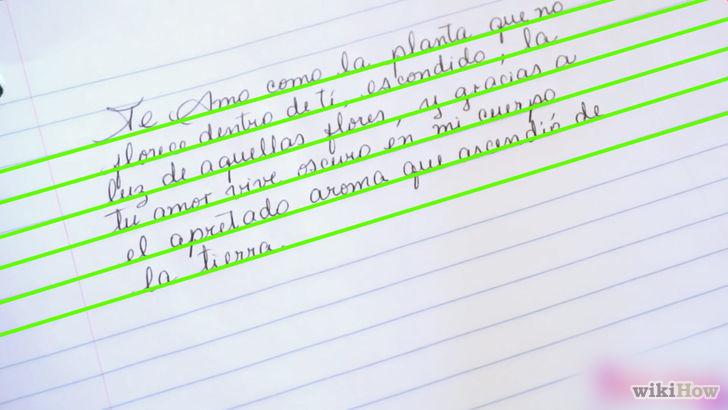 Te Amo como la planta que no
florece dentro de ti, escondido, la
luz de aquellas flores, y gracias a
tu amor vive oscuro en mi cuerpo
el apretado aroma que ascendió de
la tierra.
wikiHow